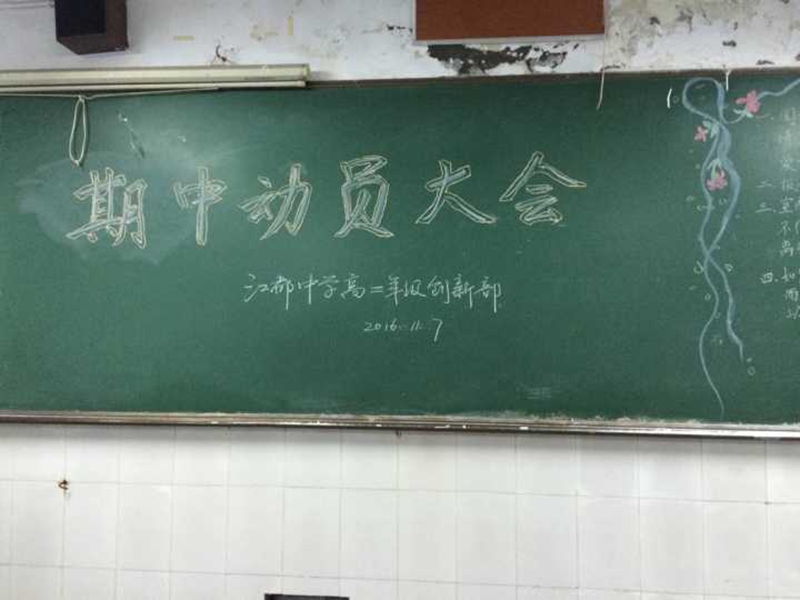 期中动员大会
江都中学高二年级创新部
2016.11.7
二、
三、
不
离
四、如